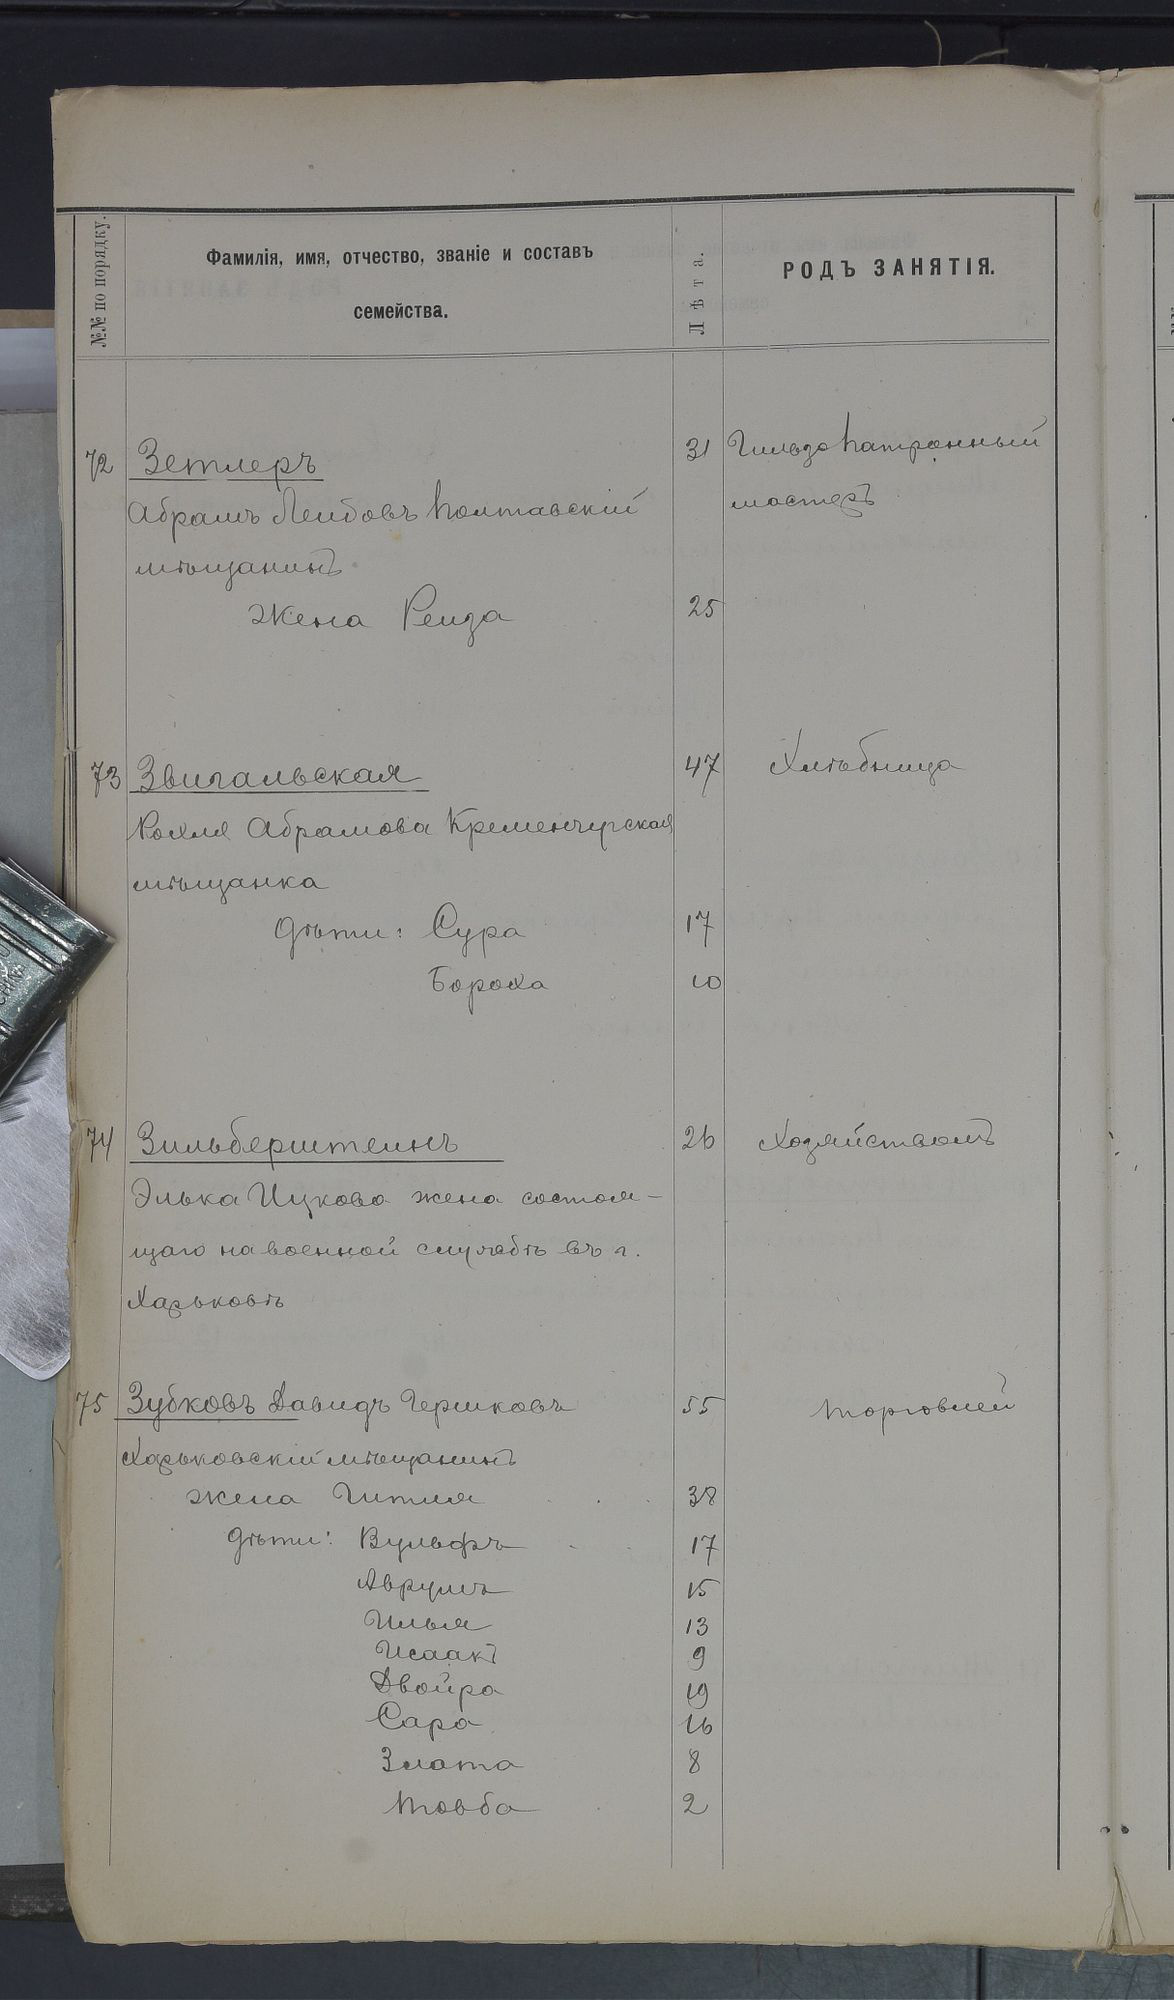 №№ по порядку.
Фамилія, имя, отчество, званіе и составъ
семейства.
Лѣта.
РОДЪ ЗАНЯТІЯ.
72 Зетлеръ 31 Гильзопатронный
Абрамъ Лейбовъ Полтавскій мастеръ
мѣщанинъ
Жена Рейза 25
73 Звигальская 47 Хлѣбница
Рохля Абрамова Кременчугская
мѣщанка
Дѣти: Сура 17
Бороха 10
74 Зильберштейнъ 26 Хозяйствомъ
Элька Ицкова жена состоя-
щаго на военной службѣ въ г.
Харьковѣ
75 Зубковъ Давидъ Гершковъ 55 Торговлей
Харьковскій мѣщанинъ
Жена Гитля 38
Дѣти: Вульфъ 17
Аврумъ 15
Илья 13
Исаакъ 9
Двойра 19
Сара 16
Злата 8
Товба 2